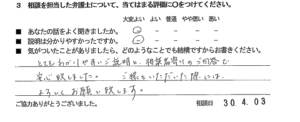 3 相談を担当した弁護士について、当てはまる評価に〇をつけてください。
大変よい よい 普通 やや悪い 悪い
■ あなたの話をよく聞きましたか。
■ 説明は分かりやすかったですか。
■ 気がついたことがありましたら、どのようなことでも結構ですからお書きください。
とてもわかりやすいご説明と、相談者寄りのご回答で
安心致しました。 ご縁をいただいた際には、
よろしくお願い致します。
ご協力ありがとうございました。 相談日 30.4.03